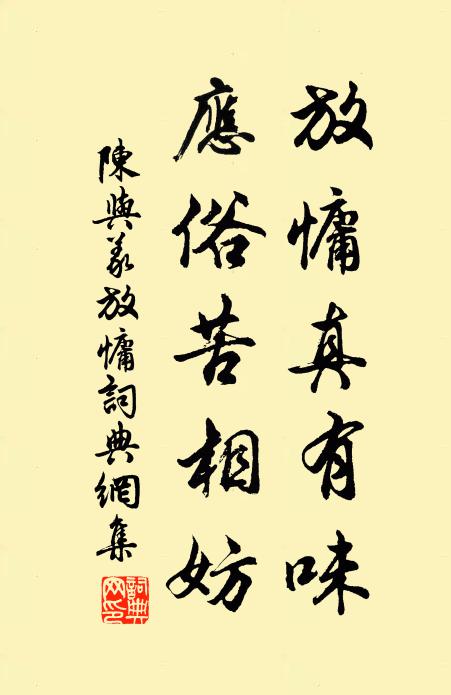 放慵真有味
應俗苦相妨
陳與義放慵詞典網集
詞典网印